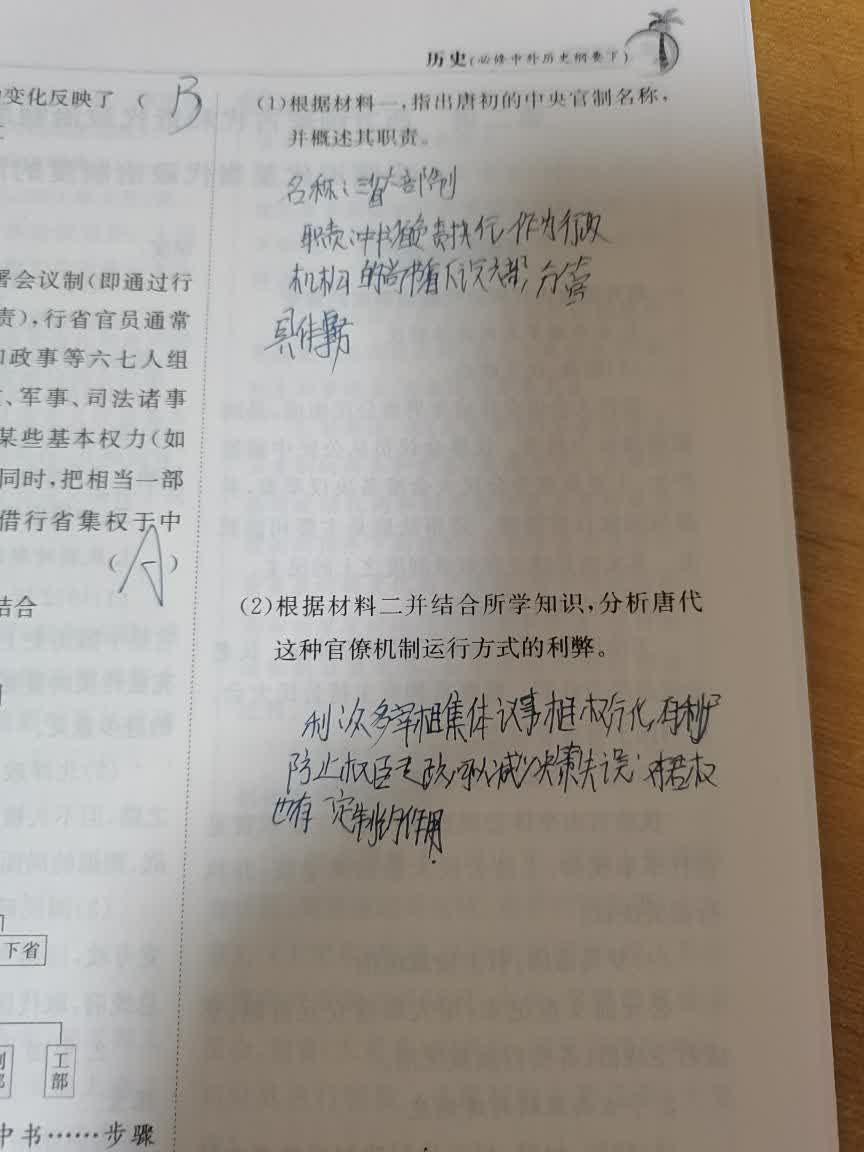 历史(必修中外历史纲要下)
变化反映了 ( B )
署会议制(即通过行
责),行省官员通常
政事等六七人组
、军事、司法诸事
某些基本权力(如
同时,把相当一部
借行省集权于中
( A )
结合
下省
部
工部
中书……步骤
(1)根据材料一,指出唐初的中央官制名称,
并概述其职责。
名称:三省六部制
职责:中书 负责执行 作为行政
机构 的尚书省下设六部, 分管
具体事务
(2)根据材料二并结合所学知识,分析唐代
这种官僚机制运行方式的利弊。
利:众多宰相集体议事相权分化,有利于
防止权臣专政,可以减少决策失误;对君权
也有一定制约作用.